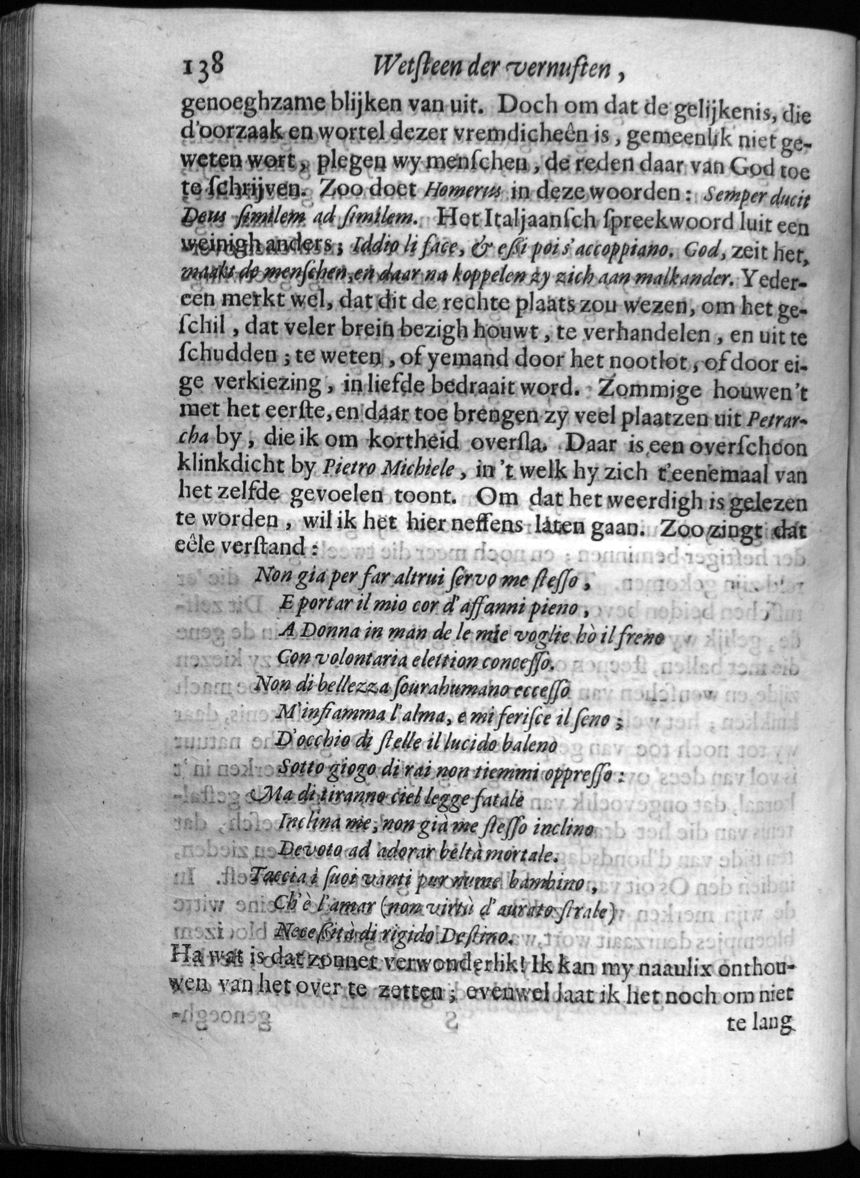 138 Wetſteen der vernuften,
genoeghzame blijken van uit. Doch om dat de gelijkenis, die
d'oorzaak en wortel dezer vremdicheên is, gemeenlik niet ge-
weten wort, plegen wy menſchen, de reden daar van God toe
te ſchrijven. Zoo doet Homerus in deze woorden: Semper ducit
Deus ſimilem ad ſimilem. Het Italjaanſch ſpreekwoord luit een
weinigh anders; Iddio li face, & eßi poi s'accoppiano. God, zeit het,
maakt de menſchen, en daar na koppelen zy zich aan malkander. Yeder-
een merkt wel, dat dit de rechte plaats zou wezen, om het ge-
ſchil, dat veler brein bezigh houwt, te verhandelen, en uit te
ſchudden; te weten, of yemand door het nootlot, of door ei-
ge verkiezing, in liefde bedraait word. Zommige houwen't
met het eerſte, en daar toe brengen zy veel plaatzen uit Petrar-
cha by, die ik om kortheid overſla. Daar is een overſchoon
klinkdicht by Pietro Michiele, in 't welk hy zich t'eenemaal van
het zelfde gevoelen toont. Om dat het weerdigh is gelezen
te worden, wil ik het hier neffens laten gaan. Zoo zingt dat
eêle verſtand:
Non gia per far altrui ſervo me ſteſſo,
E portar il mio cor d'affanni pieno,
A Donna in man de le mie voglie hò il freno
Con volontaria elettion conceſſo.
Non di bellezza ſourahumano ecceſſo
M'infiamma l'alma, e mi feriſce il ſeno;
D'occhio di ſtelle il lucido baleno
Sotto giogo di rai non tiemmi oppreſſo:
Ma di tiranno ciel legge fatale
Inclina me, non già me ſteſſo inclino
Devoto ad adorar beltà mortale.
Taccia i ſuoi vanti pur nume bambino,
Ch'è l'amar (non virtù d'aurato ſtrale)
Neceßità di rigido Deſtino.
Ha wat is dat zonnet verwonderlik! Ik kan my naaulix onthou-
wen van het over te zetten; evenwel laat ik het noch om niet
te lang